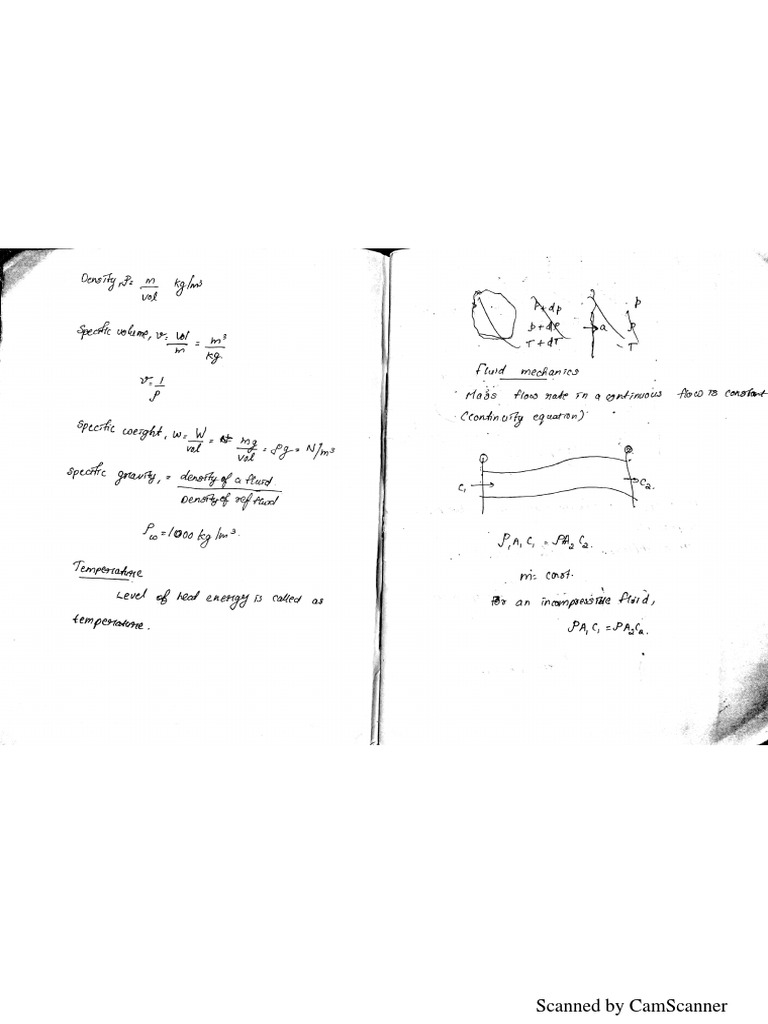 Density, ρ = m/vol kg/m³
Specific volume, v = vol/m = m³/kg
v = 1/ρ
Specific weight, w = W/vol = mg/vol = ρg = N/m³
Specific gravity, = density of a fluid / Density of ref fluid
ρw = 1000 kg/m³.
Temperature
Level of heat energy is called as
temperature.
p + dp
ρ + dρ
T + dT
a
p
ρ
T
Fluid mechanics
Mass flow rate in a continuous flow is constant
(continuity equation)
① ②
C₁ → → C₂.
ρ₁A₁C₁ = ρA₂C₂.
ṁ = const.
For an incompressible fluid,
ρA₁C₁ = ρA₂C₂.
Scanned by CamScanner